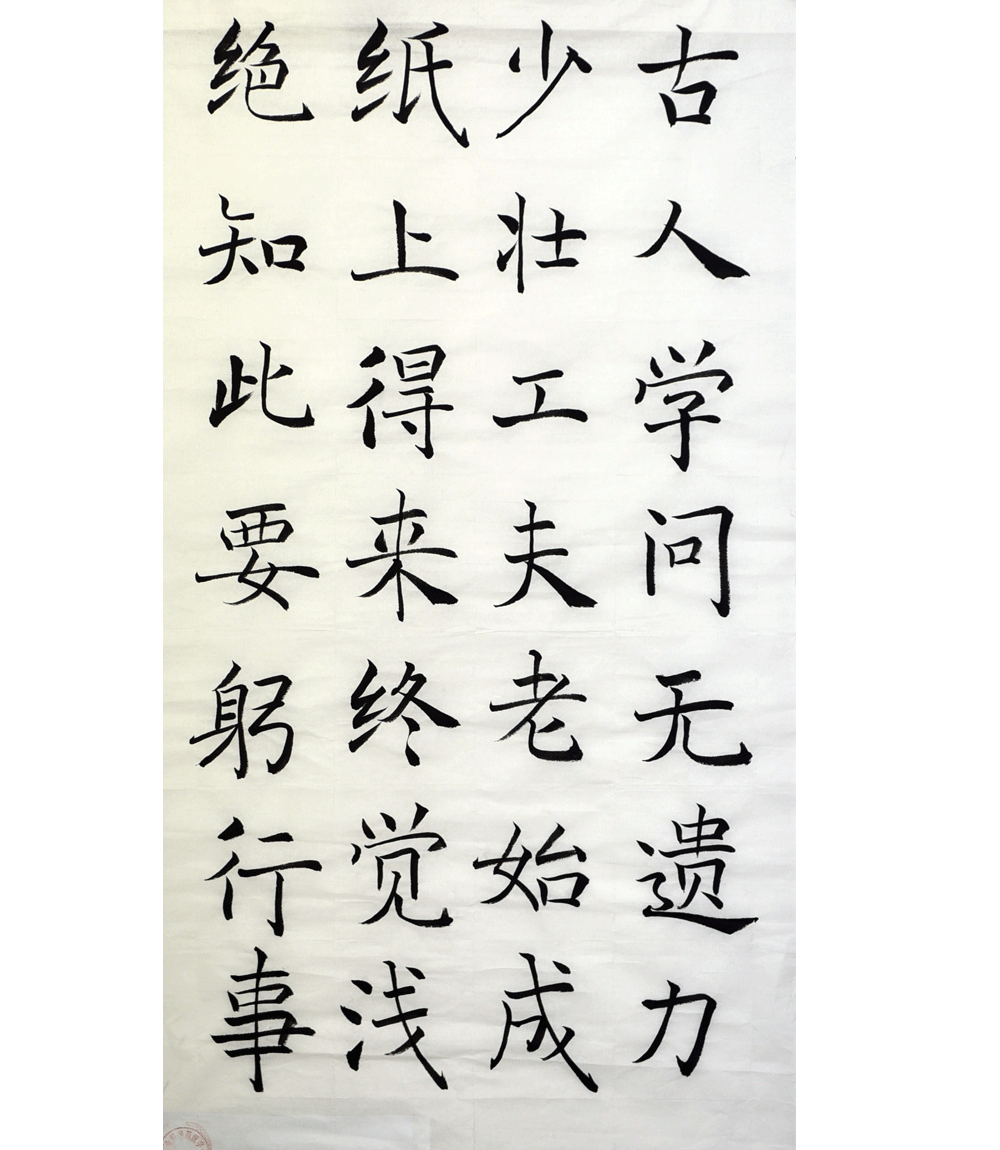 古人学问无遗力
少壮工夫老始成
纸上得来终觉浅
绝知此要躬行事